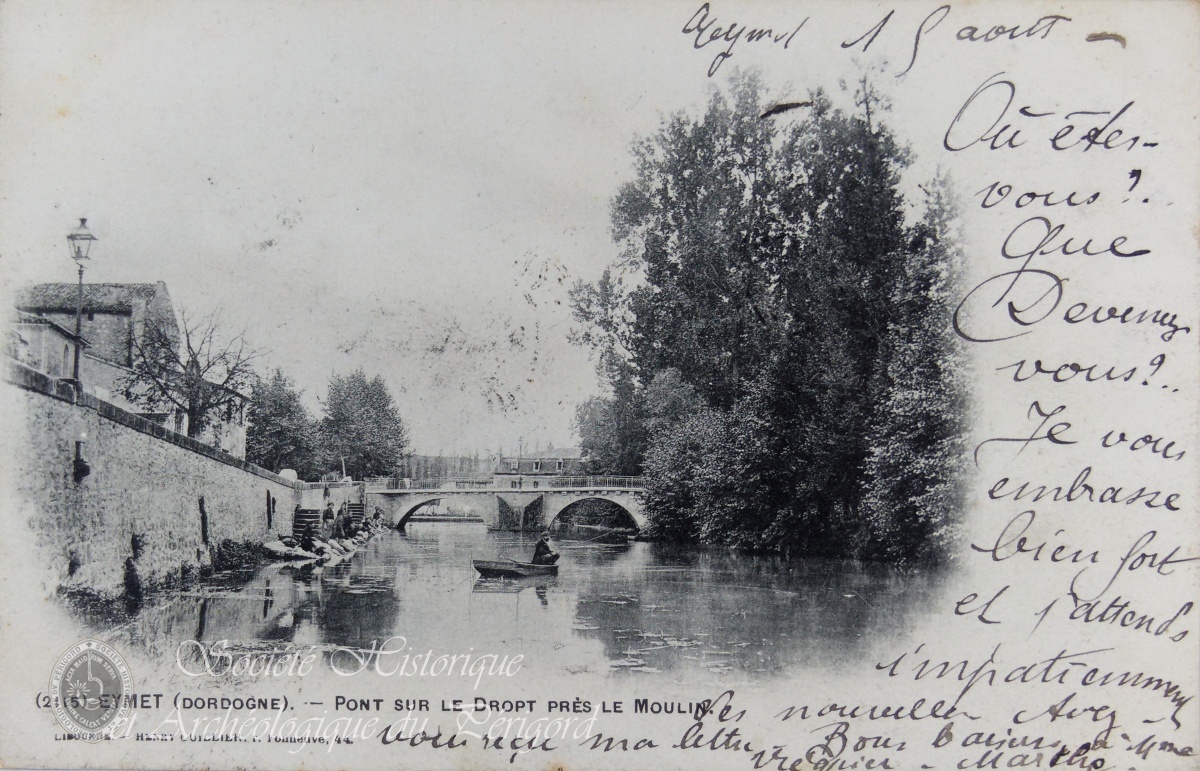 Eymet 15 aout -
Où êtes-
vous?.
Que
Devenez
vous?..
Je vous
embrasse
bien fort
et j'attends
impatiemment
(2115) EYMET (DORDOGNE). — PONT SUR LE DROPT PRÈS LE MOULIN.
des nouvelles Avez-
vous reçu ma lettre. Bons baisers à Mme
Marthe.
LIBOURNE. HENRY GUILLIER, r. Fonneuve, 44.
Société Historique
et Archéologique du Périgord